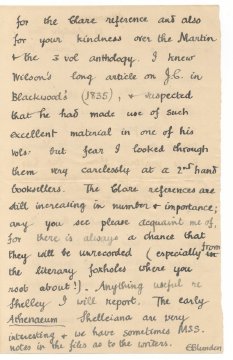 for the Clare reference and also
for your kindness over the Martin
& the 3 vol anthology. I knew
Wilson's long article on J.C. in
Blackwood's (1835), & suspected
that he had made use of such
excellent material in one of his
vols. but fear I looked through
them very carelessly at a 2nd hand
booksellers. The Clare references are
still increasing in number & importance;
any you see please acquaint me of,
for there is always a chance that
they will be unrecorded (especially in from
the literary foxholes where you
root about!). Anything useful re
Shelley I will report. The early
Athenaeum Shelleiana are very
interesting & we have sometimes MSS.
notes in the files as to the writers.
EBlunden